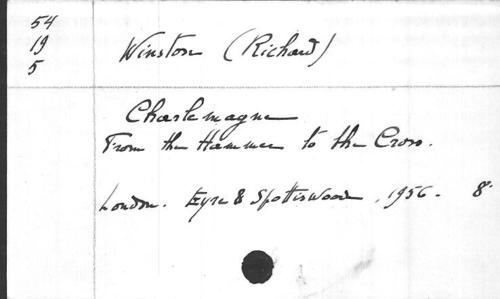 54
19
5
Winston (Richard)
Charlemagne
From the Hammer to the Cross.
London. Eyre & Spottiswoode, 1956. 8°